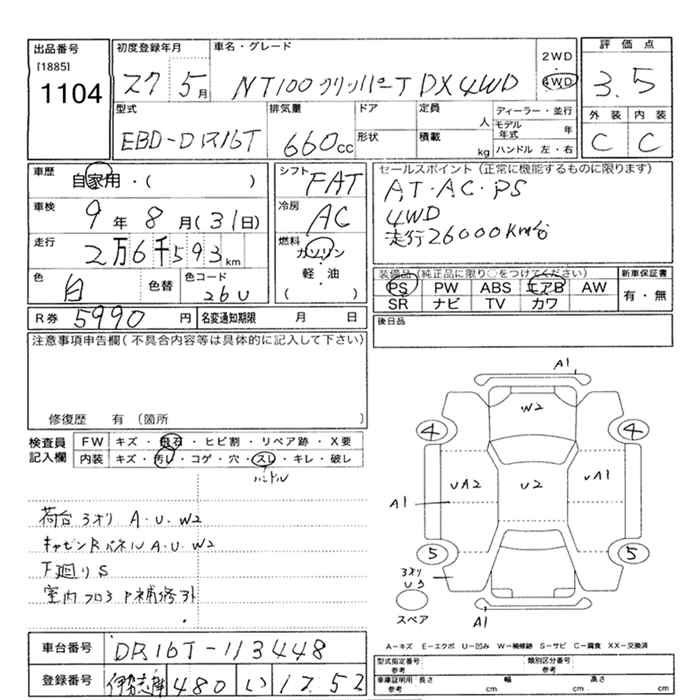 出品番号
[1885]
1104
初度登録年月
ス7 5月
車名・グレード
NT100クリッパーT DX 4WD
2WD
4WD
評価点
3.5
外装 内装
C C
型式
EBD-DR16T
排気量
660cc
ドア
形状
定員
人
積載
kg
ディーラー・並行
モデル年式 年
ハンドル 左・右
車歴
自家用・( )
車検
9年8月(31日)
走行
2万6千593km
色
白
色替
色コード
26U
シフト
FAT
冷房
AC
燃料
ガソリン
・
軽油
( )
セールスポイント(正常に機能するものに限ります)
A,T・A,C・PS
4WD
走行26000km台
装備品(純正品に限り○をつけてください)
PS PW ABS エアB AW
SR ナビ TV カワ
新車保証書
有・無
R券 5990円
名変通知期限 月 日
後日品
注意事項申告欄(不具合内容等は具体的に記入して下さい)
修復歴 有(箇所 )
検査員記入欄
FW キズ・飛石・ヒビ割・リペア跡・X要
内装 キズ・汚れ・コゲ・穴・スレ・キレ・破レ
ハンドル
荷台3オリ A・U・W2
キャビンRパネルA・U・W2
下廻りS
室内フロア P補修外
A1
W2
4 4
UA2 U2 UA1
A1
5 5
3オリ
U3
スペア
A1
A-キズ E-エクボ U-凹み W-補修跡 S-サビ C-腐食 XX-交換済
車台番号
DR16T-113448
登録番号
伊勢志摩 480 い 17.52
型式指定番号
参考
類別区分番号
参考
車庫証明用 参考
長さ cm
幅 cm
高さ cm